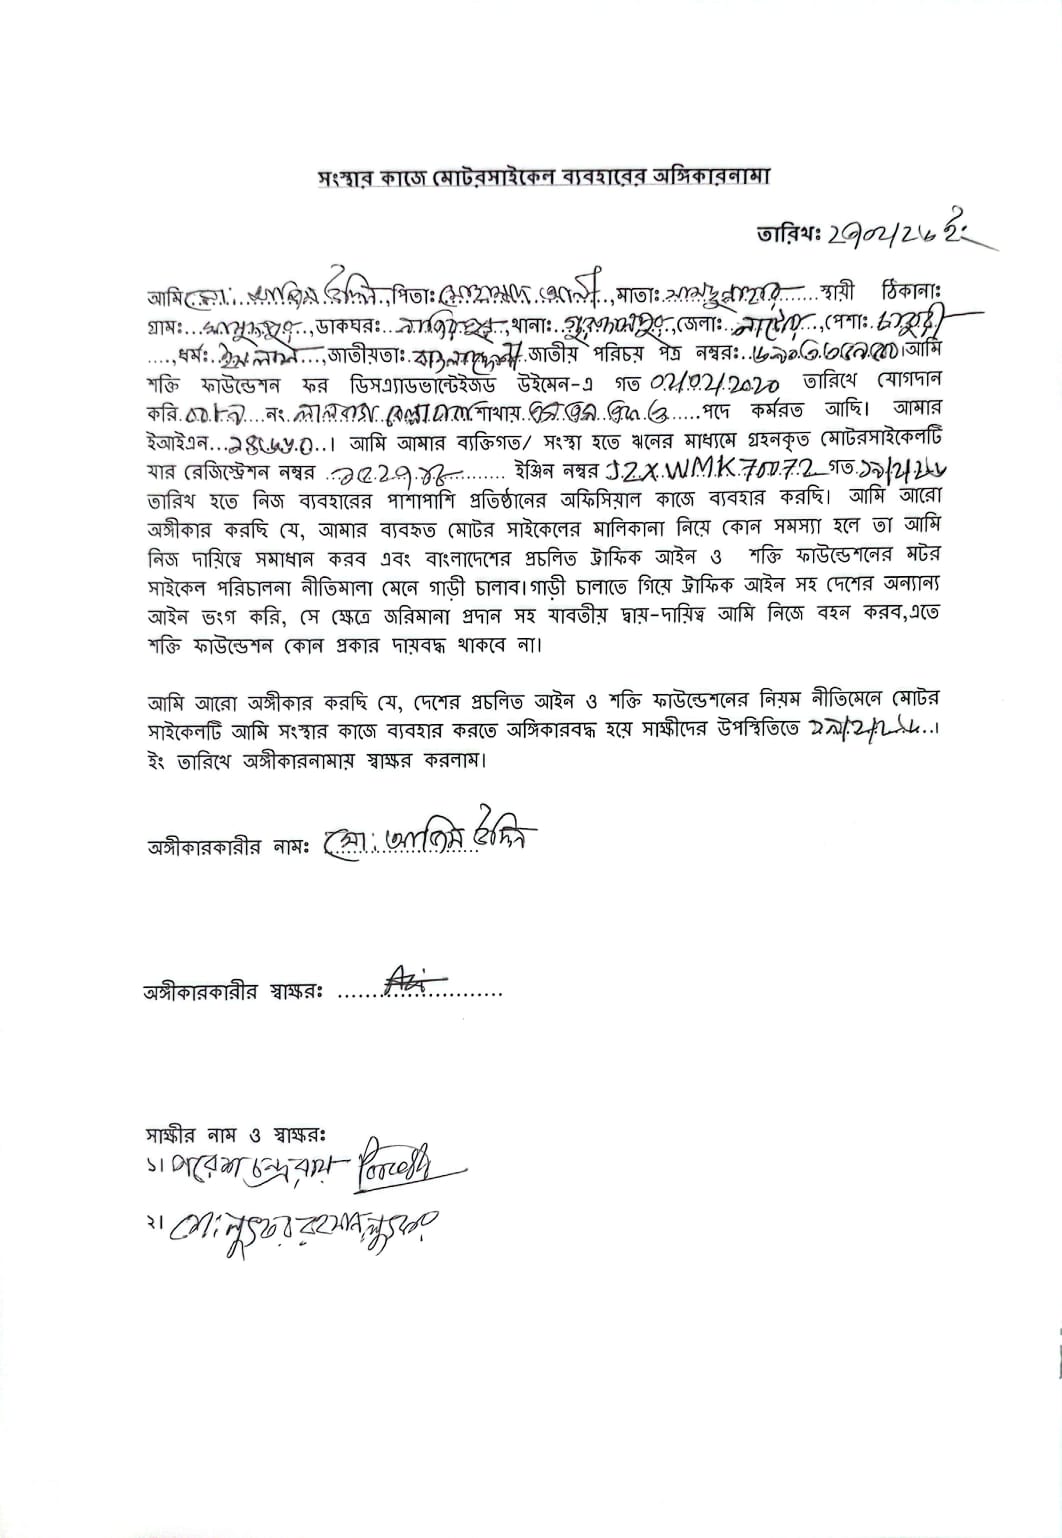 সংস্থার কাজে মোটরসাইকেল ব্যবহারের অঙ্গিকারনামা
তারিখঃ
আমি মো: আজিম উদ্দিন, পিতাঃ মোহাম্মদ আলী, মাতাঃ স্থায়ী ঠিকানাঃ
গ্রামঃ ডাকঘরঃ নাজিরপুর, থানাঃ গুরুদাসপুর, জেলাঃ নাটোর, পেশাঃ চাকুরী
, ধর্মঃ ইসলাম, জাতীয়তাঃ বাংলাদেশী জাতীয় পরিচয় পত্র নম্বরঃ আমি
শক্তি ফাউন্ডেশন ফর ডিসএ্যাডভান্টেইজড উইমেন-এ গত 02/02/2020 তারিখে যোগদান
করি নং শাখায় পদে কর্মরত আছি। আমার
ইআইএন । আমি আমার ব্যক্তিগত/ সংস্থা হতে ঋনের মাধ্যমে গ্রহনকৃত মোটরসাইকেলটি
যার রেজিস্ট্রেশন নম্বর ইঞ্জিন নম্বর JZXWMK70072 গত
তারিখ হতে নিজ ব্যবহারের পাশাপাশি প্রতিষ্ঠানের অফিসিয়াল কাজে ব্যবহার করছি। আমি আরো
অঙ্গীকার করছি যে, আমার ব্যবহৃত মোটর সাইকেলের মালিকানা নিয়ে কোন সমস্যা হলে তা আমি
নিজ দায়িত্বে সমাধান করব এবং বাংলাদেশের প্রচলিত ট্রাফিক আইন ও শক্তি ফাউন্ডেশনের মটর
সাইকেল পরিচালনা নীতিমালা মেনে গাড়ী চালাব।গাড়ী চালাতে গিয়ে ট্রাফিক আইন সহ দেশের অন্যান্য
আইন ভংগ করি, সে ক্ষেত্রে জরিমানা প্রদান সহ যাবতীয় দ্বায়-দায়িত্ব আমি নিজে বহন করব,এতে
শক্তি ফাউন্ডেশন কোন প্রকার দায়বদ্ধ থাকবে না।
আমি আরো অঙ্গীকার করছি যে, দেশের প্রচলিত আইন ও শক্তি ফাউন্ডেশনের নিয়ম নীতিমেনে মোটর
সাইকেলটি আমি সংস্থার কাজে ব্যবহার করতে অঙ্গিকারবদ্ধ হয়ে সাক্ষীদের উপস্থিতিতে
ইং তারিখে অঙ্গীকারনামায় স্বাক্ষর করলাম।
অঙ্গীকারকারীর নামঃ মো: আজিম উদ্দিন
অঙ্গীকারকারীর স্বাক্ষরঃ
সাক্ষীর নাম ও স্বাক্ষরঃ
১। পরেশ চন্দ্র রায়
২। মো: লুৎফর রহমান, লুৎফর